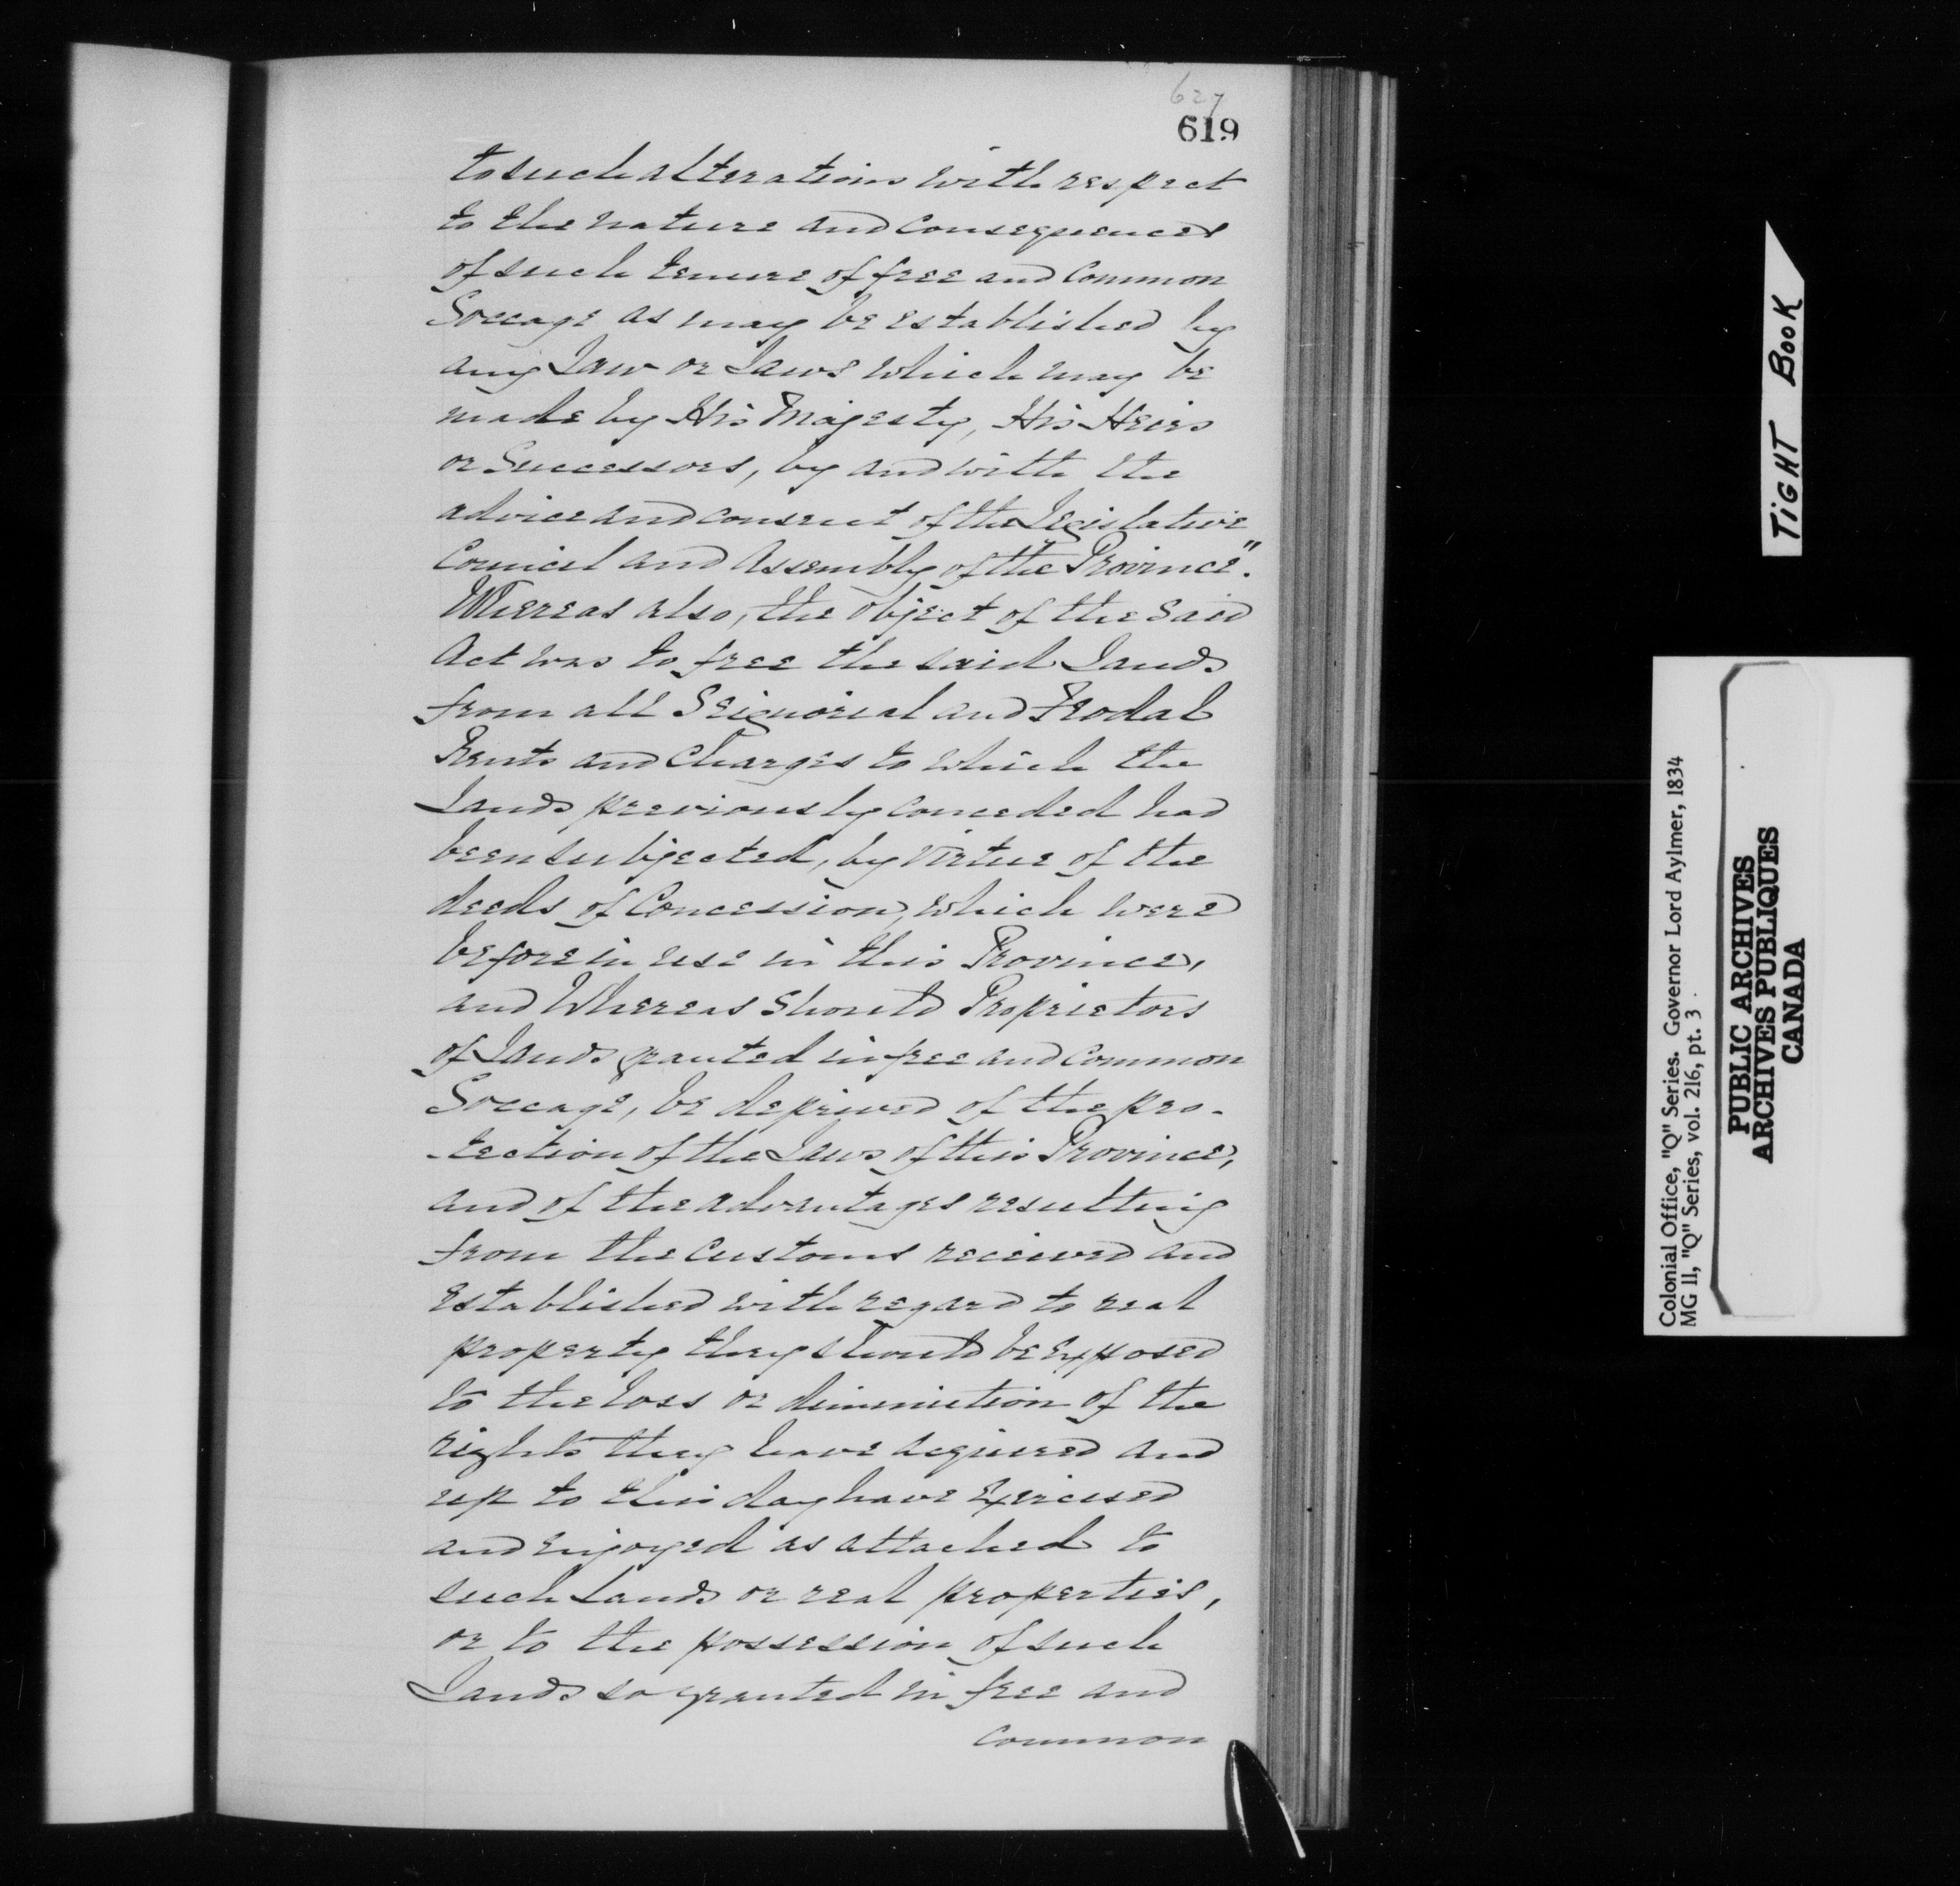 627
619
to such alterations with respect
to the nature and consequences
of such tenure of free and Common
Soccage as may be established by
any Law or Laws which may be
made by His Majesty, His Heirs
or Successors, by and with the
advice and consent of the Legislative
Council and Assembly of the Province".
Whereas also, the object of the said
Act was to free the said Lands
from all Seignorial and Feodal
Rents and Charges to which the
Lands previously conceded had
been subjected, by virtue of the
deeds of Concession, which were
before in use in this Province,
and Whereas should Proprietors
of Lands granted in free and common
Soccage, be deprived of the pro-
-tection of the Laws of this Province,
and of the advantages resulting
from the customs received and
established with regard to real
property they should be exposed
to the loss or diminution of the
rights they have acquired and
up to this day have exercised
and enjoyed as attached to
such Lands or real properties,
or to the possession of such
Lands so granted in free and
common
TIGHT BOOK
Colonial Office, "Q" Series. Governor Lord Aylmer, 1834
MG 11, "Q" Series, vol. 216, pt. 3.
PUBLIC ARCHIVES
ARCHIVES PUBLIQUES
CANADA